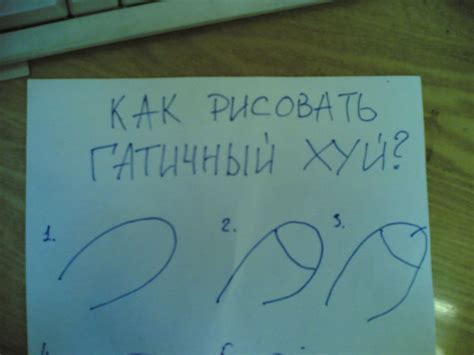 КАК РИСОВАТЬ
ГАТИЧНЫЙ ХУЙ?
1. 2. 3.